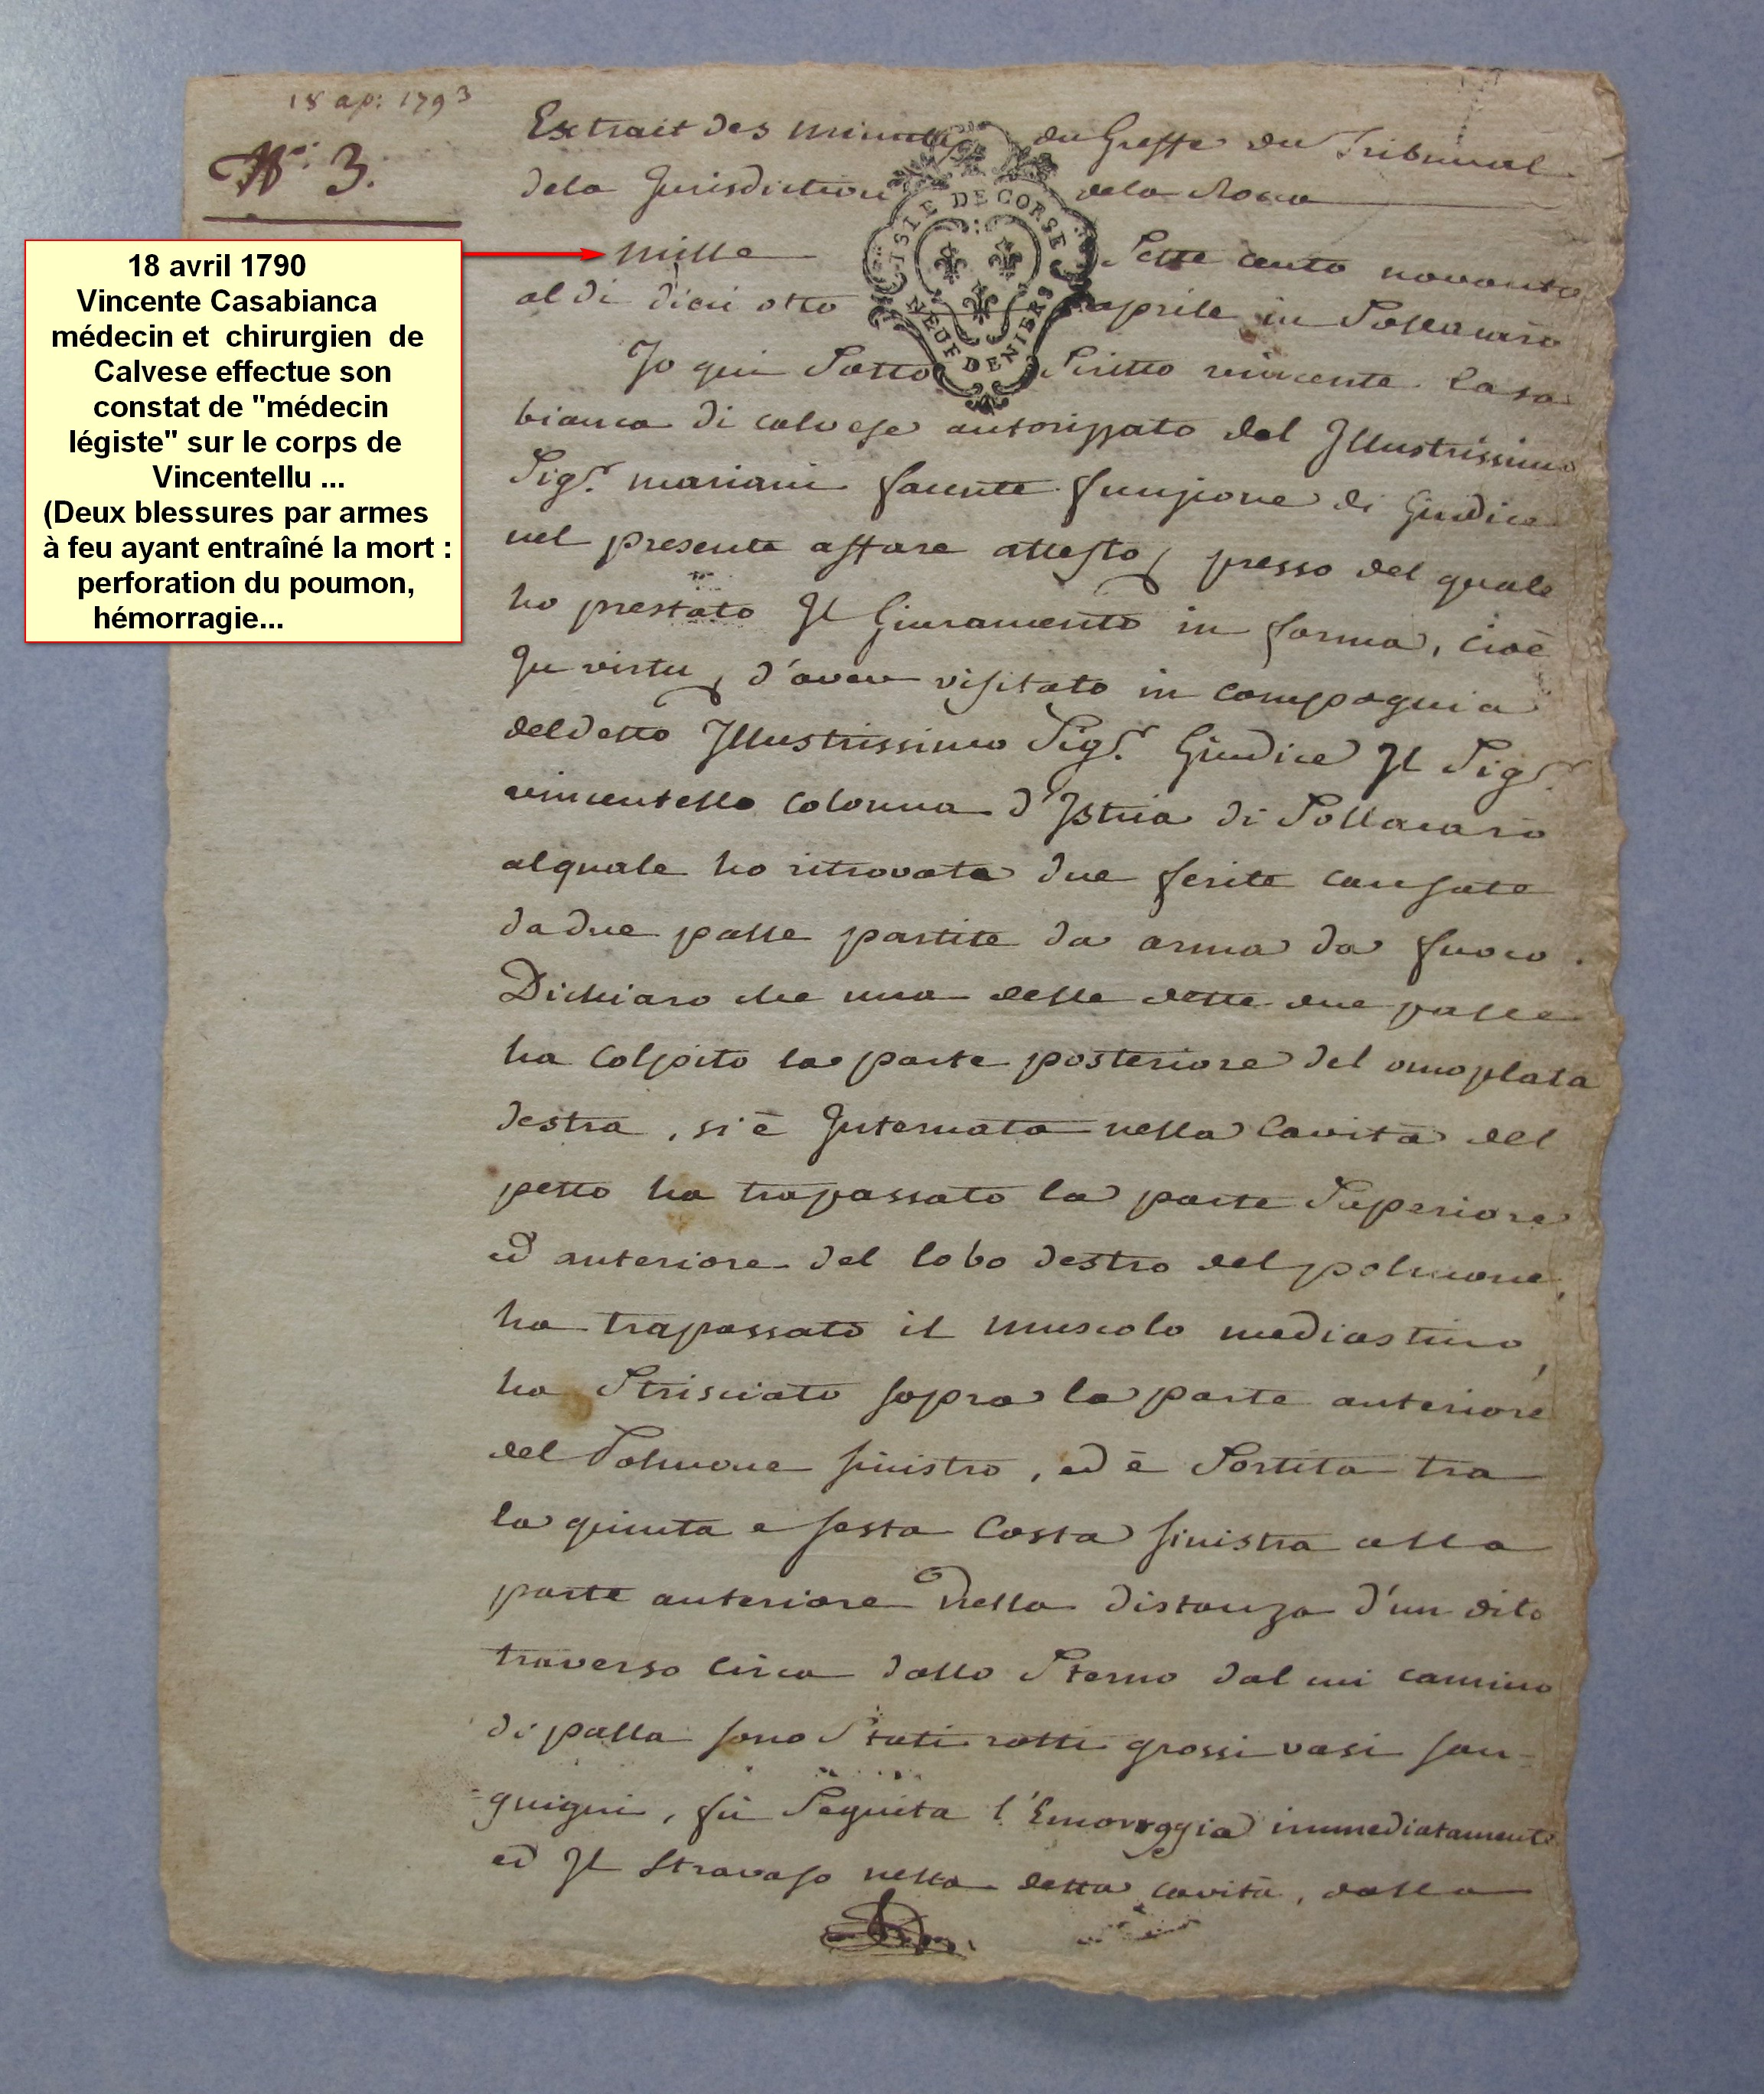 18 ap: 1793
N.º 3.
18 avril 1790
Vincente Casabianca
médecin et chirurgien de
Calvese effectue son
constat de "médecin
légiste" sur le corps de
Vincentellu ...
(Deux blessures par armes
à feu ayant entraîné la mort :
perforation du poumon,
hémorragie...
Extrait des minutes du Greffe du Tribunal
dela Jurisdiction dela Rocca
ISLE DE CORSE
NEUF DENIERS
Mille Sette cento novanta
al di dieci otto aprile in Sollacarò
Jo qui Sotto Scritto vincente Casa
bianca di calvese autorizzato dal Jllustrissimo
Sig.r mariani facente funzione di Giudice
nel presente affare attesto, presso del quale
ho prestato Jl Giuramento in forma, cioè
Ju virtu, d'aver visitato in compagnia
deldetto Jllustrissimo Sig.r Giudice Jl Sig.r
vincentello colonna d'Jstria di Sollacarò
alquale ho ritrovate due ferite causate
dadue palle partite da arma da fuoco.
Dichiaro che una delle dette due palle
ha colpito la parte posteriore del omoplata
destra, si è Jnternata nella cavità del
petto ha trapassato la parte Superiore
ed anteriore del lobo destro del polmone,
ha trapassato il muscolo mediastino,
ha Strisciato sopra la parte anteriore
del Polmone sinistro, ed è Sortita tra
la quinta e sesta Costa sinistra alla
parte anteriore nella distanza d'un dito
traverso circa dallo Sterno dal cui camino
di palla sono Stati rotti grossi vasi san-
guigni, fù Seguita l'Emoraggia immediatamente
ed Jl stravaso nella detta cavità, dalla